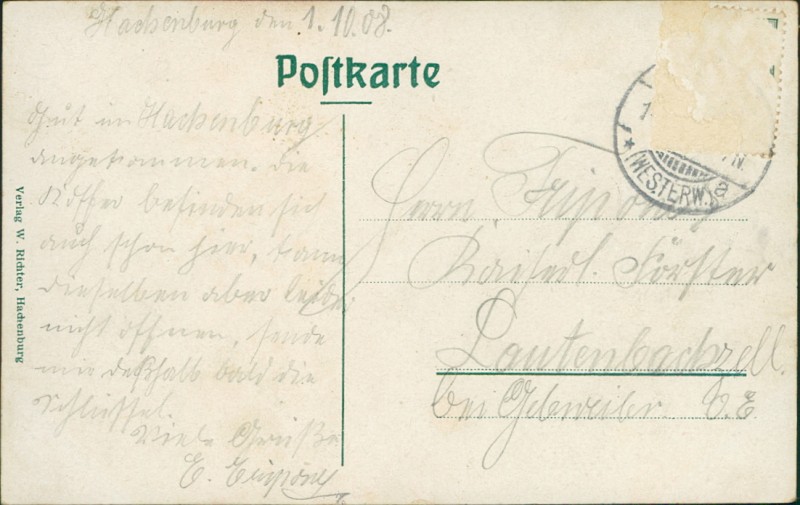 Hachenburg den 1.10.08.
Postkarte
Gut in Hachenburg
angekommen. Die
Koffer befinden sich
auch schon hier, kann
dieselben aber leider
nicht öffnen, sende
mir deßhalb bald die
Schlüssel.
Viele Grüße
E.
Herrn
Kaiserl. Förster
Lautenbachzell.
bei Gebweiler. O. E.
(WESTERW.)
Verlag W. Richter, Hachenburg